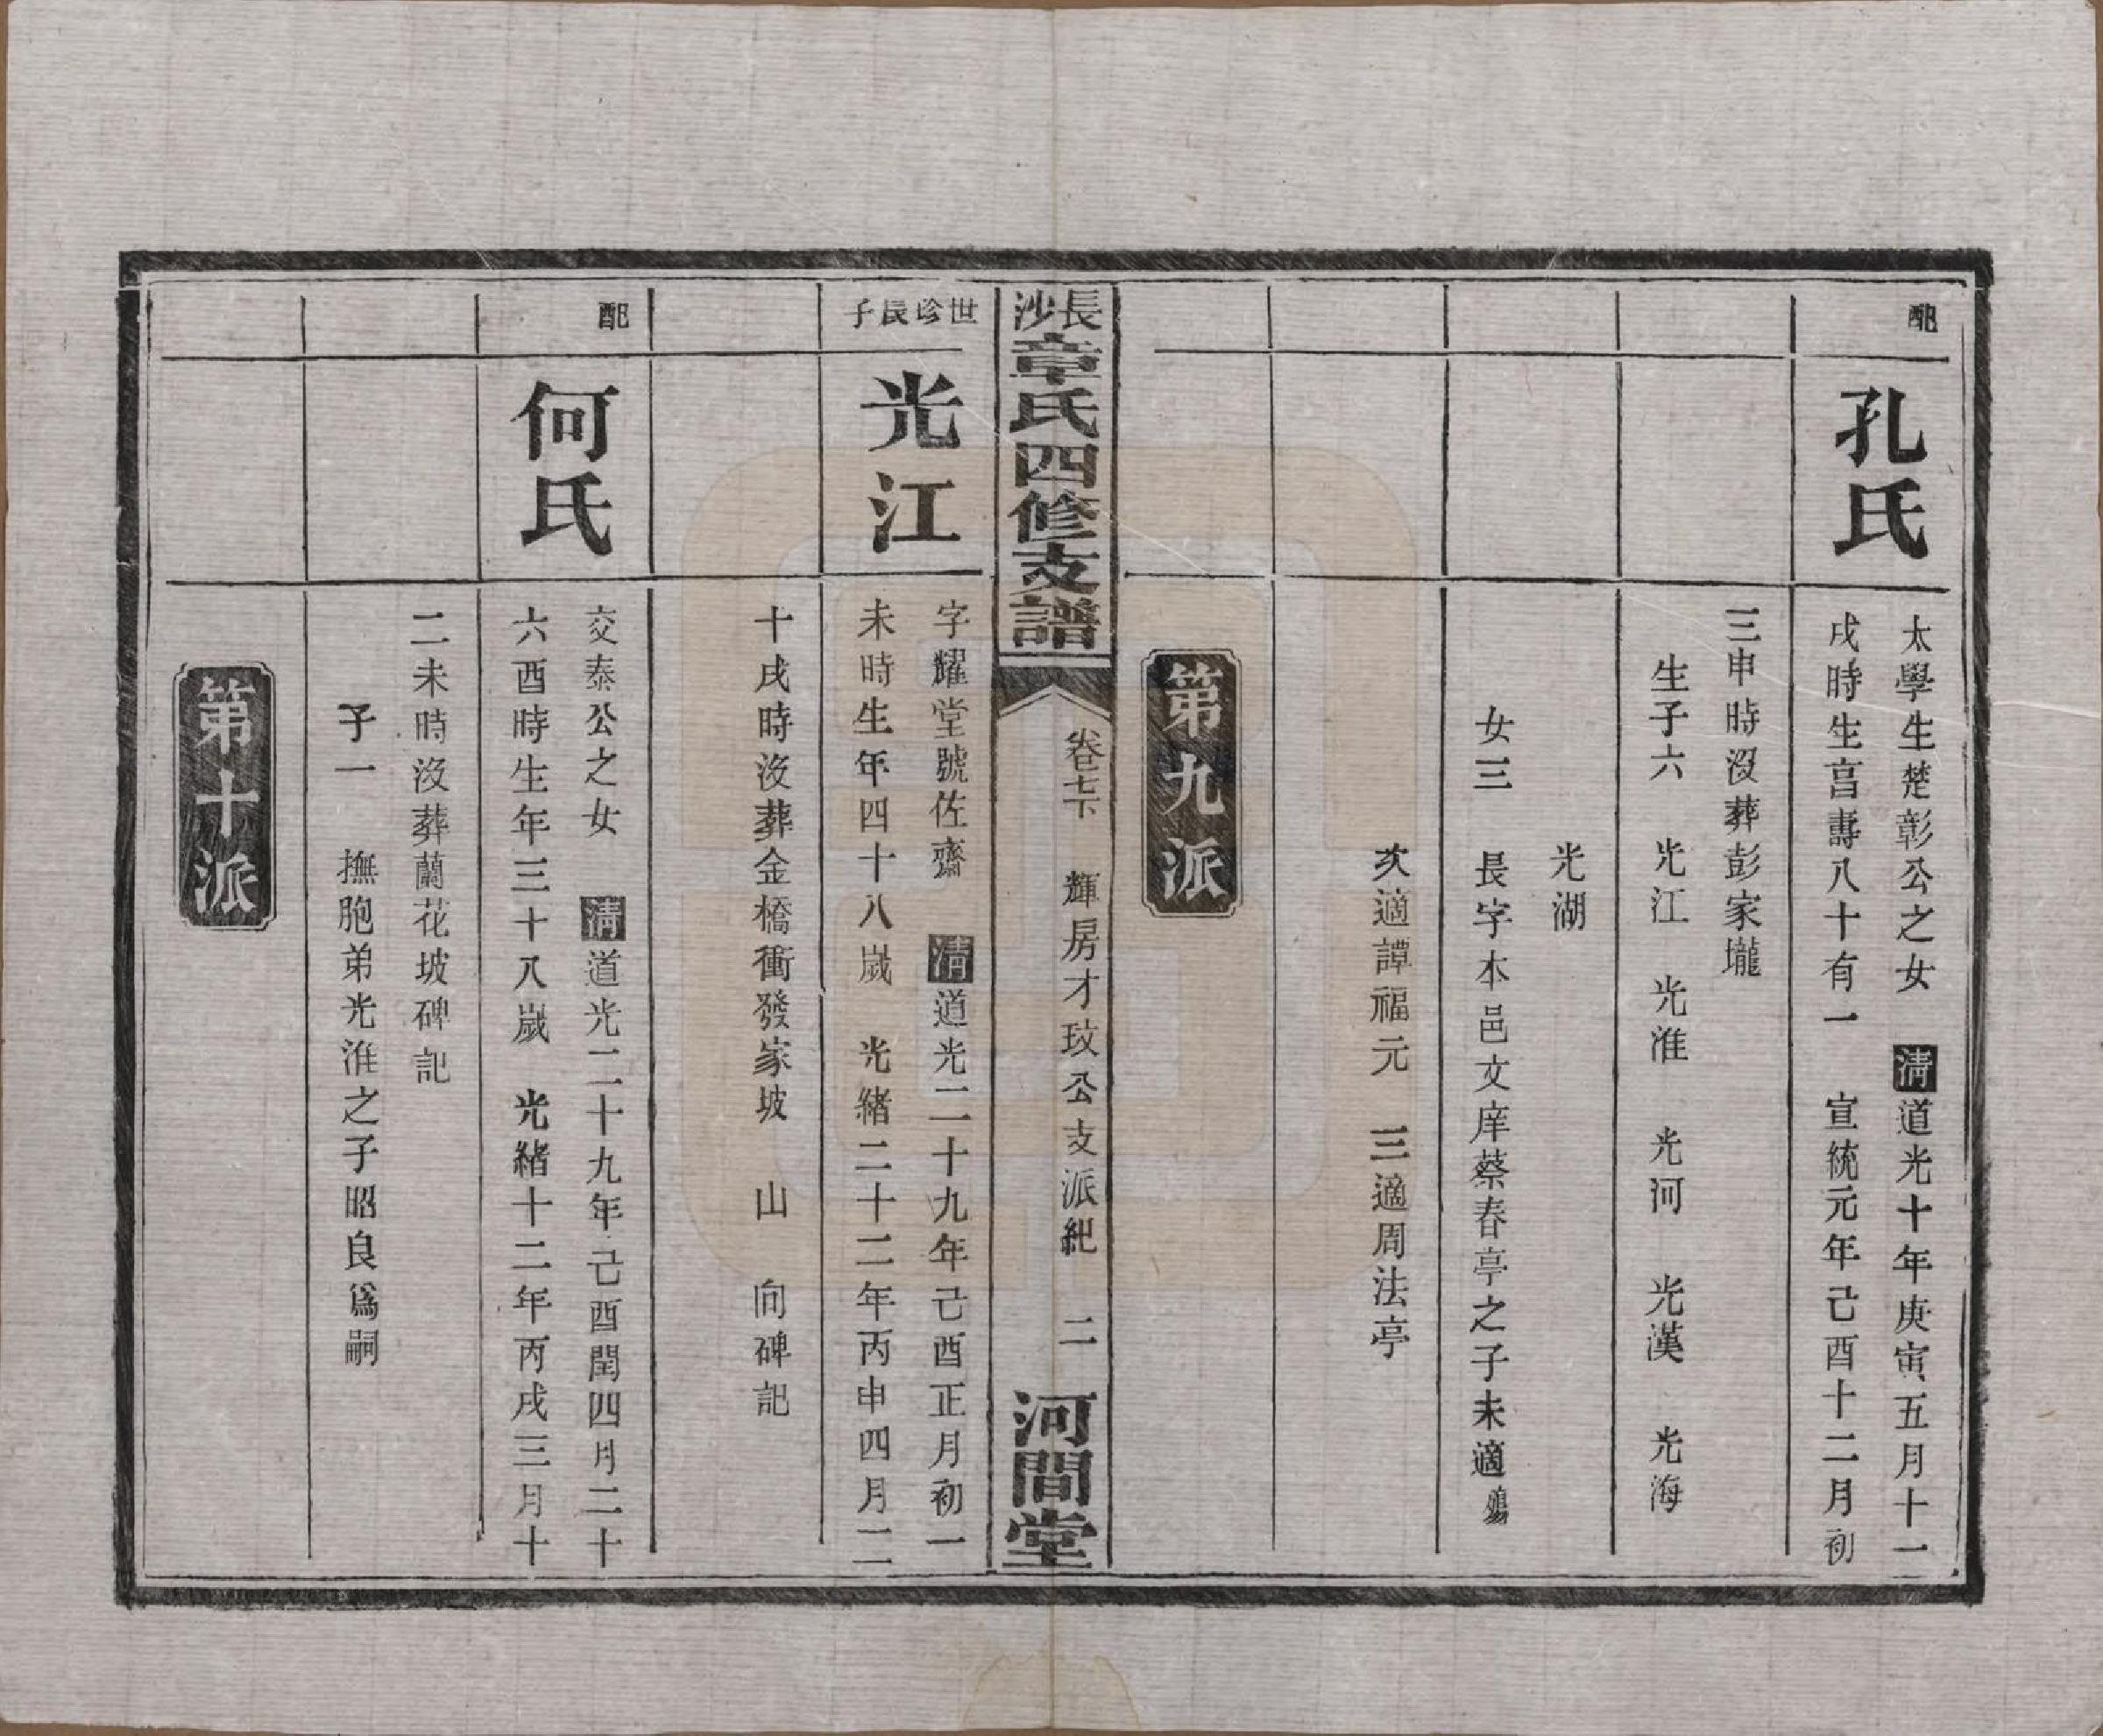 配
孔氏
太學生楚彰公之女　清道光十年庚寅五月十一
戌時生富壽八十有一　宣統元年己酉十二月初
三申時沒葬彭家壠
生子六　光江　光淮　光河　光漢　光海
光湖
女三　長字本邑文庠蔡春亭之子未適殤
次適譚福元　三適周法亭
第九派
長沙章氏四修支譜
卷七下　輝房才玟公支派紀　二
河間堂
世珍長子
光江
字耀堂號佐齋　清道光二十九年己酉正月初一
未時生年四十八歲　光緒二十二年丙申四月二
十戌時沒葬金橋衝發家坡　山　向碑記
配
何氏
交泰公之女　清道光二十九年己酉閏四月二十
六酉時生年三十八歲　光緒十二年丙戌三月十
二未時沒葬蘭花坡碑記
子一　撫胞弟光淮之子昭良爲嗣
第十派